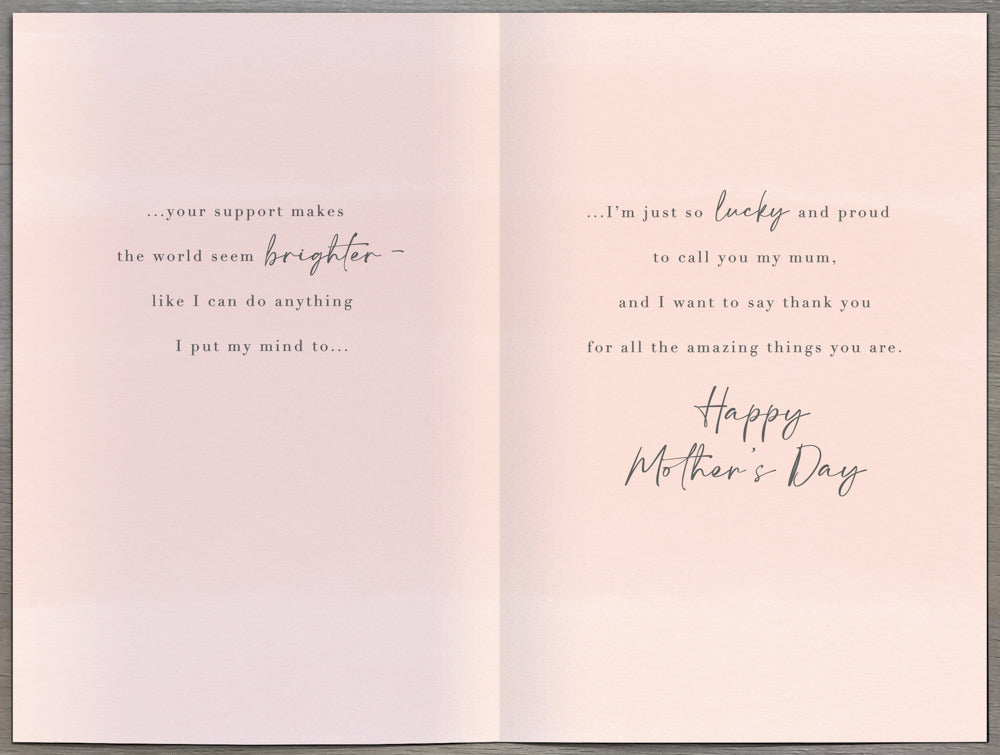 ...your support makes
the world seem brighter –
like I can do anything
I put my mind to...
...I'm just so lucky and proud
to call you my mum,
and I want to say thank you
for all the amazing things you are.
Happy
Mother's Day